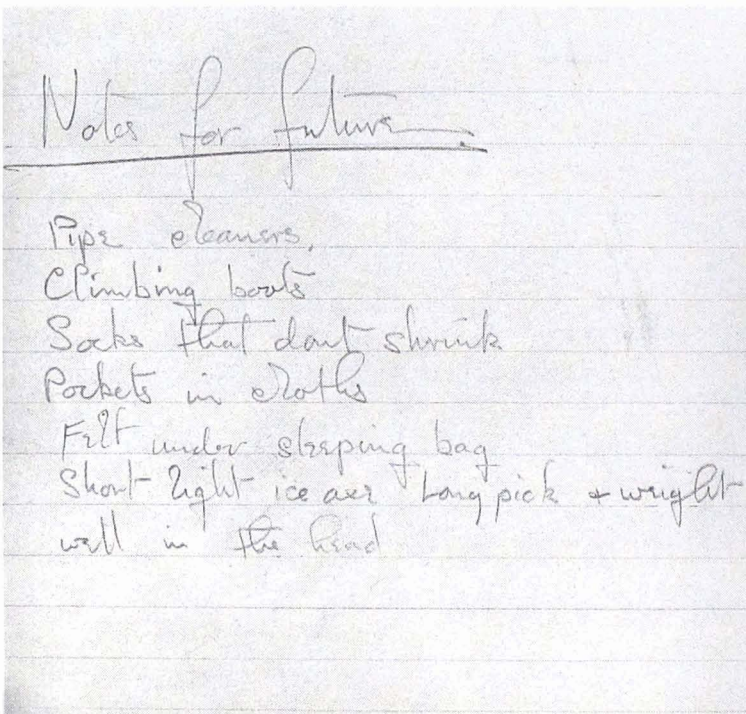 Notes for future
Pipe cleaners.
Climbing boots
Socks that dont shrink
Pockets in cloths
Felt under sleeping bag
Short light ice axe Long pick + weight
well in the head